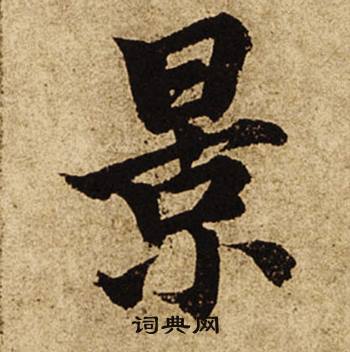 景
词典网